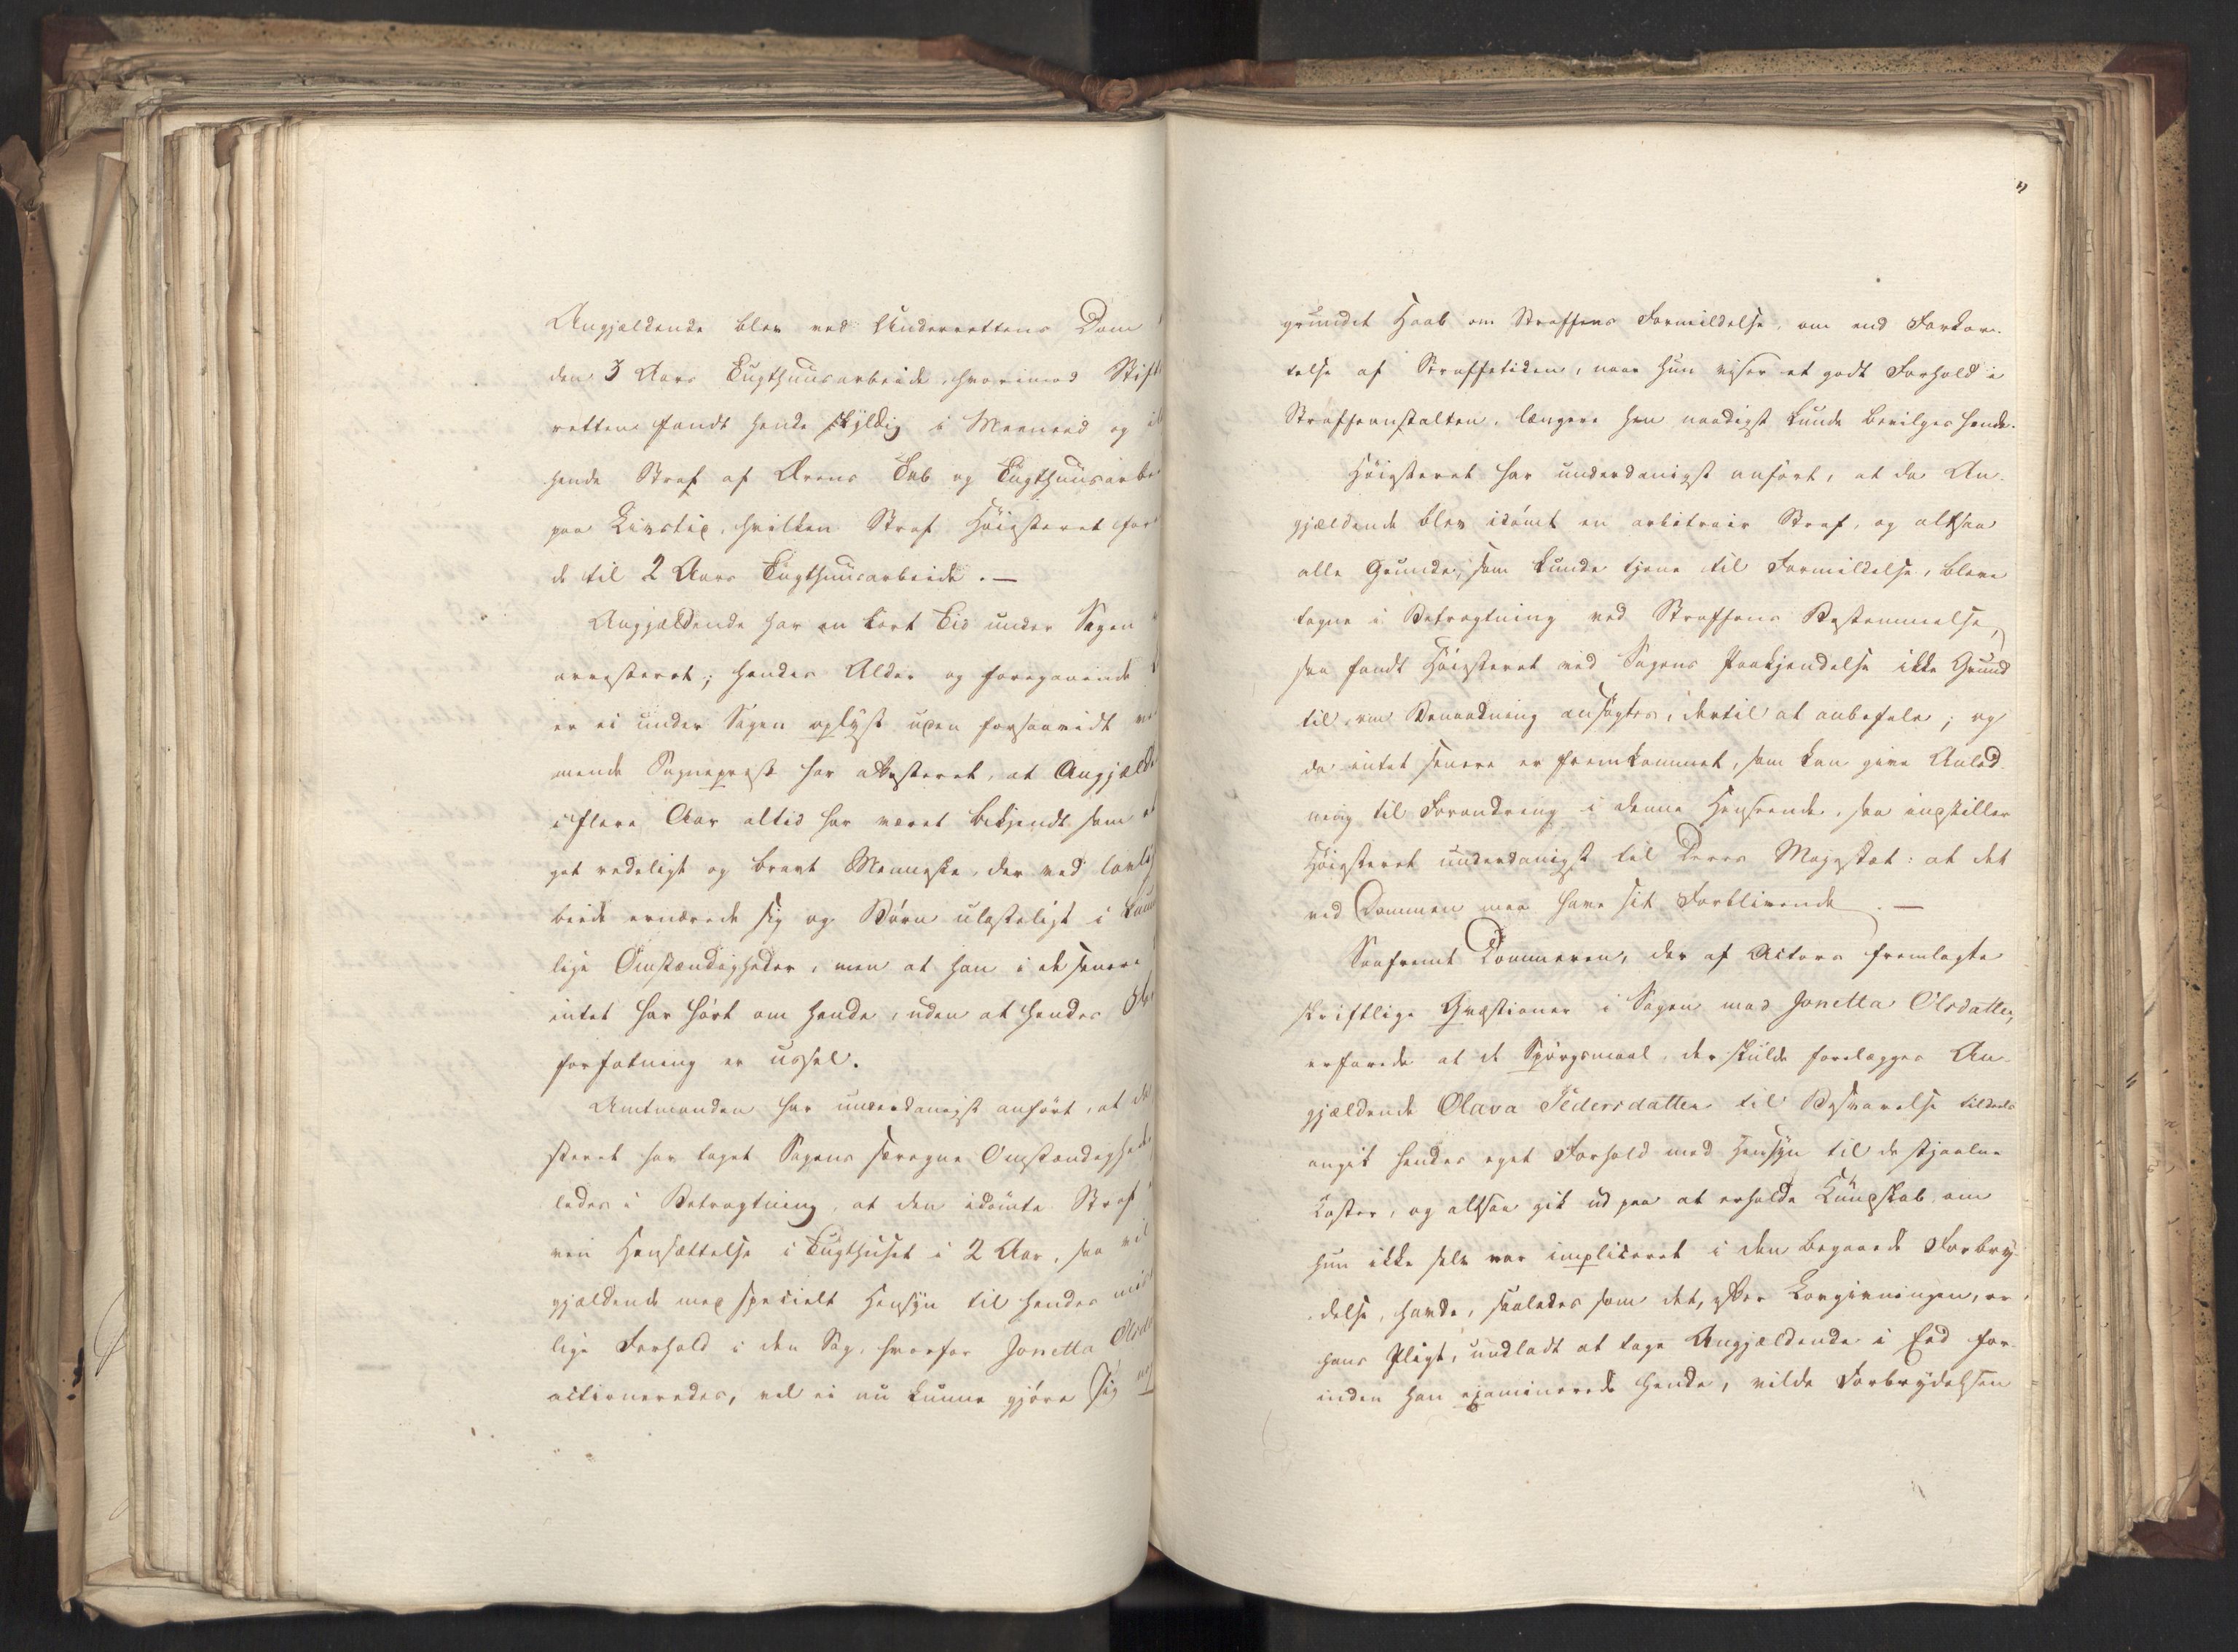 Angjældende blev ved Underrettens Dom
den 3 Aars Tugthuusarbeide, hvorimod Stifts
retten fandt hende skyldig i Meeneed og
hende Straf af Ærens Tab og Tugthuusarbe
paa Livstid, hvilken Straf Høiesteret for
de til 2 Aars Tugthuusarbeide. —
Angjældende har en kort Tid under Sagen
arresteret; hendes Alder og foregaaende
er ei under Sagen oplyst uden forsaavidt
mende Sognepræst har attesteret, at Angjælde
i flere Aar altid har været bekjendt som
get redeligt og bravt Menneske, der ved lovlig
beide ernærede sig og Børn ulasteligt i kum
lige Omstændigheder, men at han i de senere
intet har hørt om hende, uden at hendes
forfatning er ussel.
Amtmanden har underdanigst anført, at
steret har taget Sagens særegne Omstændighede
ledes i Betragtning, at den idømte Straf
ren Hensættelse i Tugthuset i 2 Aar, saa vil
gjældende med specielt Hensyn til hendes
lige Forhold i den Sag, hvorfor Jonetta Olsda
actioneredes, vel ei nu kunne gjøre sig
"
grundet Haab om Straffens Formildelse, om end Forkor-
telse af Straffetiden, naar hun viser et godt Forhold i
Straffeanstalten, længere hen naadigst kunde bevilges hende.
Høiesteret har underdanigst anført, at da An-
gjældende blev idømt en arbitrair Straf, og altsaa
alle Grunde, som kunde tjene til Formildelse, bleve
tagne i Betragtning ved Straffens Bestemmelse,
saa fandt Høiesteret ved Sagens Paakjendelse ikke Grund
til, om Benaadning ansøgtes, dertil at anbefale; og
da intet senere er fremkommet, som kan give Anled-
ning til Forandring i denne Henseende, saa indstiller
Høiesteret underdanigst til Deres Majestæt: at det
ved Dommen maa have sit Forblivende. —
Saafremt Dommeren, der af Actors fremlagte
skriftlige Qvæstioner i Sagen mod Jonetta Olsdatter,
erfarede at de Spørgsmaal, der skulde forelægges An-
gjældende Olava Pedersdatter til Besvarelse tildeels
angik hendes eget Forhold med Hensyn til de stjaalne
Koster, og altsaa gik ud paa at erholde Kundskab om
hun ikke selv var impliceret i den begaaede Forbry-
delse, havde, saaledes som det, efter Lovgivningen, er
hans Pligt, undladt at tage Angjældende i Eed for-
inden han examinerede hende, vilde Forbrydelsen